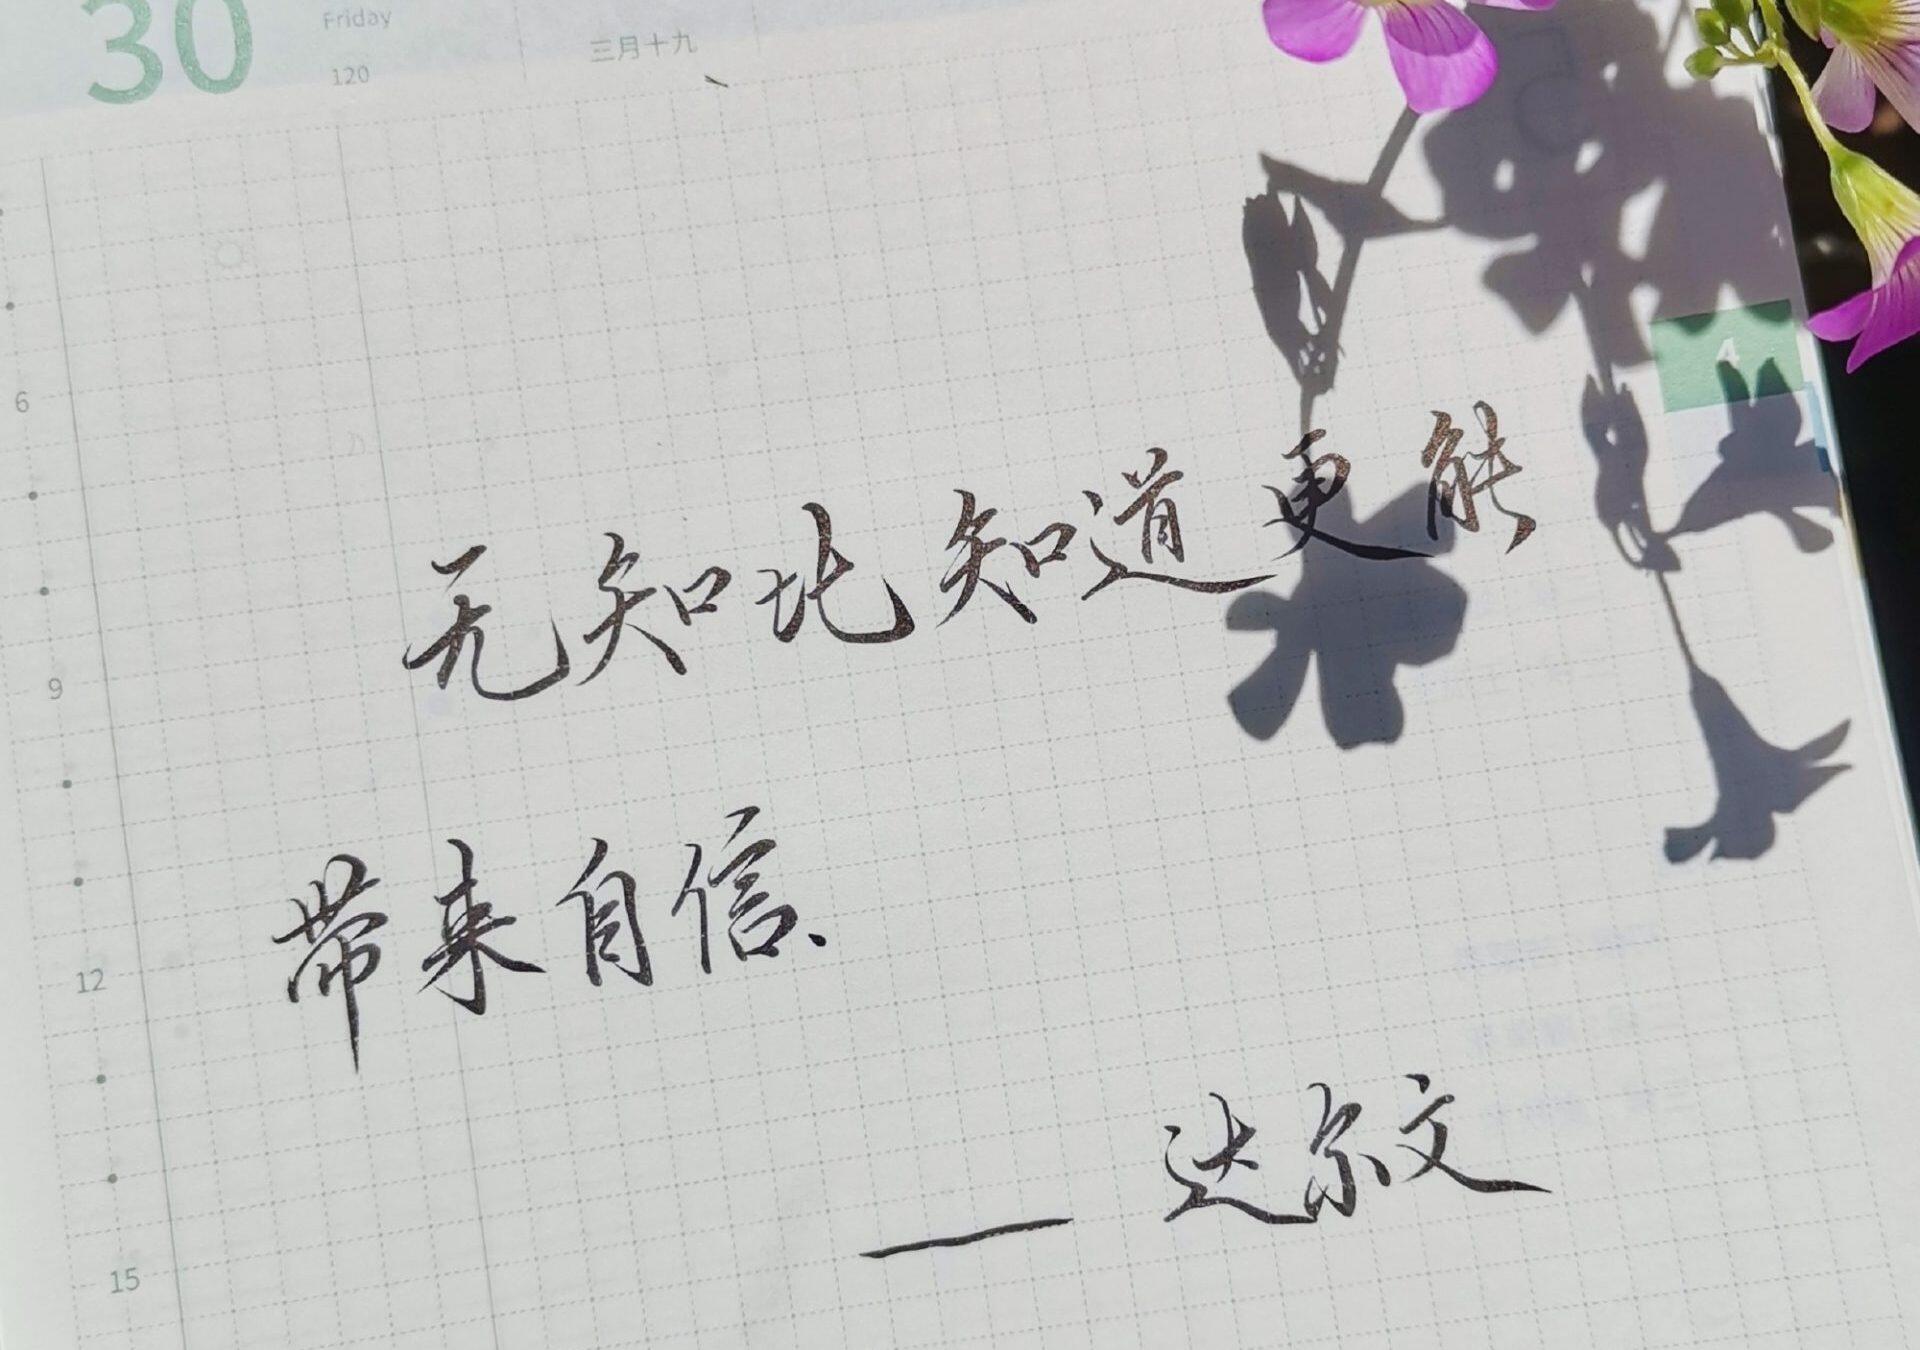 30 Friday 三月十九
120
4
6
无知比知道更能
9
带来自信.
12
—— 达尔文
15